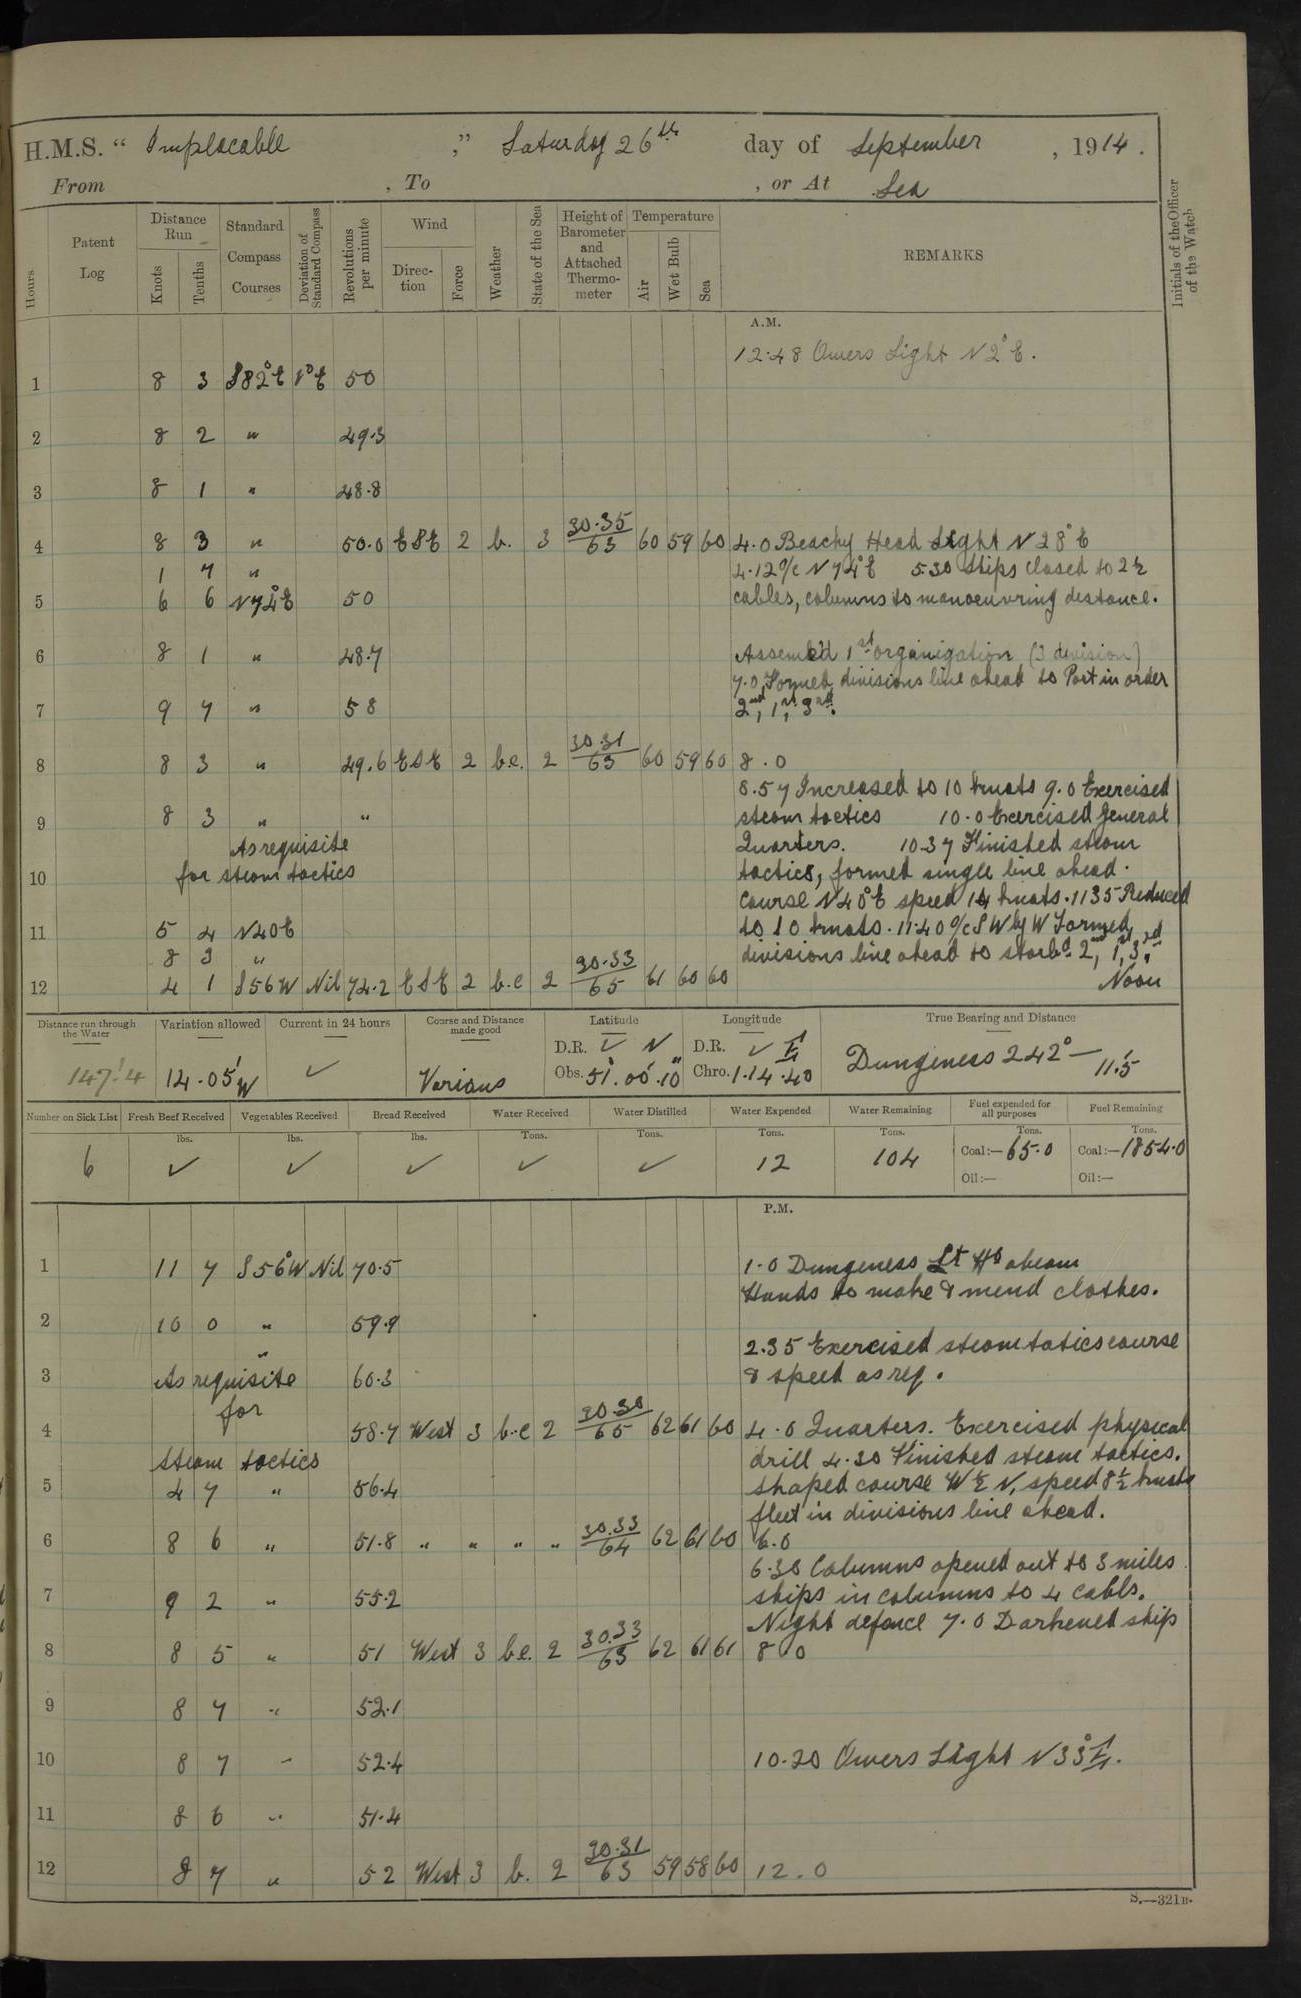 H.M.S. “ Implacable ,” Saturday 26th day of September , 1914 .
From , To , or At Sea
Hours. Patent Log Distance Run Knots Tenths Standard Compass Courses Deviation of Standard Compass Revolutions per minute Wind Direction Force Weather State of the Sea Height of Barometer and Attached Thermometer Temperature Air Wet Bulb Sea REMARKS Initials of the Officer of the Watch
A.M.
12.48 Owers Light N 2° E.
1 8 3 S82°E 1°E 50
2 8 2 " 49.3
3 8 1 " 48.8
4 8 3 " 50.0 ESE 2 b. 3 30.35/63 60 59 60 4.0 Beachy Head Light N 28° E
1 7 " 4.12 a/c N 74° E 5.30 Ships closed to 2½
5 6 6 N74°E 50 cables, columns to manoeuvring distance.
6 8 1 " 48.7 Assembl'd 1st organization (3 division)
7.0 Formed divisions line ahead to Port in order
7 9 7 " 58 2nd, 1st, 3rd.
8 8 3 " 49.6 ESE 2 b.c. 2 30.31/63 60 59 60 8.0
8.57 Increased to 10 knots 9.0 Exercised
9 8 3 " " steam tactics 10.0 Exercised General
As requisite Quarters. 10.37 Finished steam
10 for steam tactics tactics, formed single line ahead.
Course N40°E speed 14 knots. 11 35 Reduced
11 5 4 N40E to 10 knots. 11.40 a/c SW by W Formed
8 3 " divisions line ahead to starbd. 2nd, 1st, 3rd.
12 4 1 S56W Nil 74.2 ESE 2 b.c 2 30.33/65 61 60 60 Noon
Distance run through the Water Variation allowed Current in 24 hours Course and Distance made good Latitude Longitude True Bearing and Distance
D.R. ✓ N D.R. ✓ E
147.4 14.05'W ✓ Various Obs. 51.00.10 Chro. 1.14.40 Dungeness 242° — 11.5
Number on Sick List Fresh Beef Received Vegetables Received Bread Received Water Received Water Distilled Water Expended Water Remaining Fuel expended for all purposes Fuel Remaining
lbs. lbs. lbs. Tons. Tons. Tons. Tons. Tons. Tons.
6 ✓ ✓ ✓ ✓ ✓ 12 104 Coal:— 65.0 Coal:— 1854.0
Oil:— Oil:—
P.M.
1 11 7 S56°W Nil 70.5 1.0 Dungeness Lt Ho abeam
Hands to make & mend clothes.
2 10 0 " 59.9
" 2.35 Exercised steam tatics course
3 As requisite 60.3 & speed as req.
for
4 58.7 West 3 b.c 2 30.30/65 62 61 60 4.0 Quarters. Exercised physical
steam tactics drill 4.30 Finished steam tactics.
5 4 7 " 56.4 shaped course W ½ N, speed 8½ knots
fleet in divisions line ahead.
6 8 6 " 51.8 " " " " 30.33/64 62 61 60 6.0
6.30 Columns opened out to 3 miles
7 9 2 " 55.2 ships in columns to 4 cabls.
Night defence 7.0 Darkened ship
8 8 5 " 51 West 3 b.c. 2 30.33/63 62 61 61 8.0
9 8 7 " 52.1
10 8 7 " 52.4 10.20 Owers Light N33°E.
11 8 6 " 51.4
12 8 7 " 52 West 3 b. 2 30.31/63 59 58 60 12.0
S.—321B.